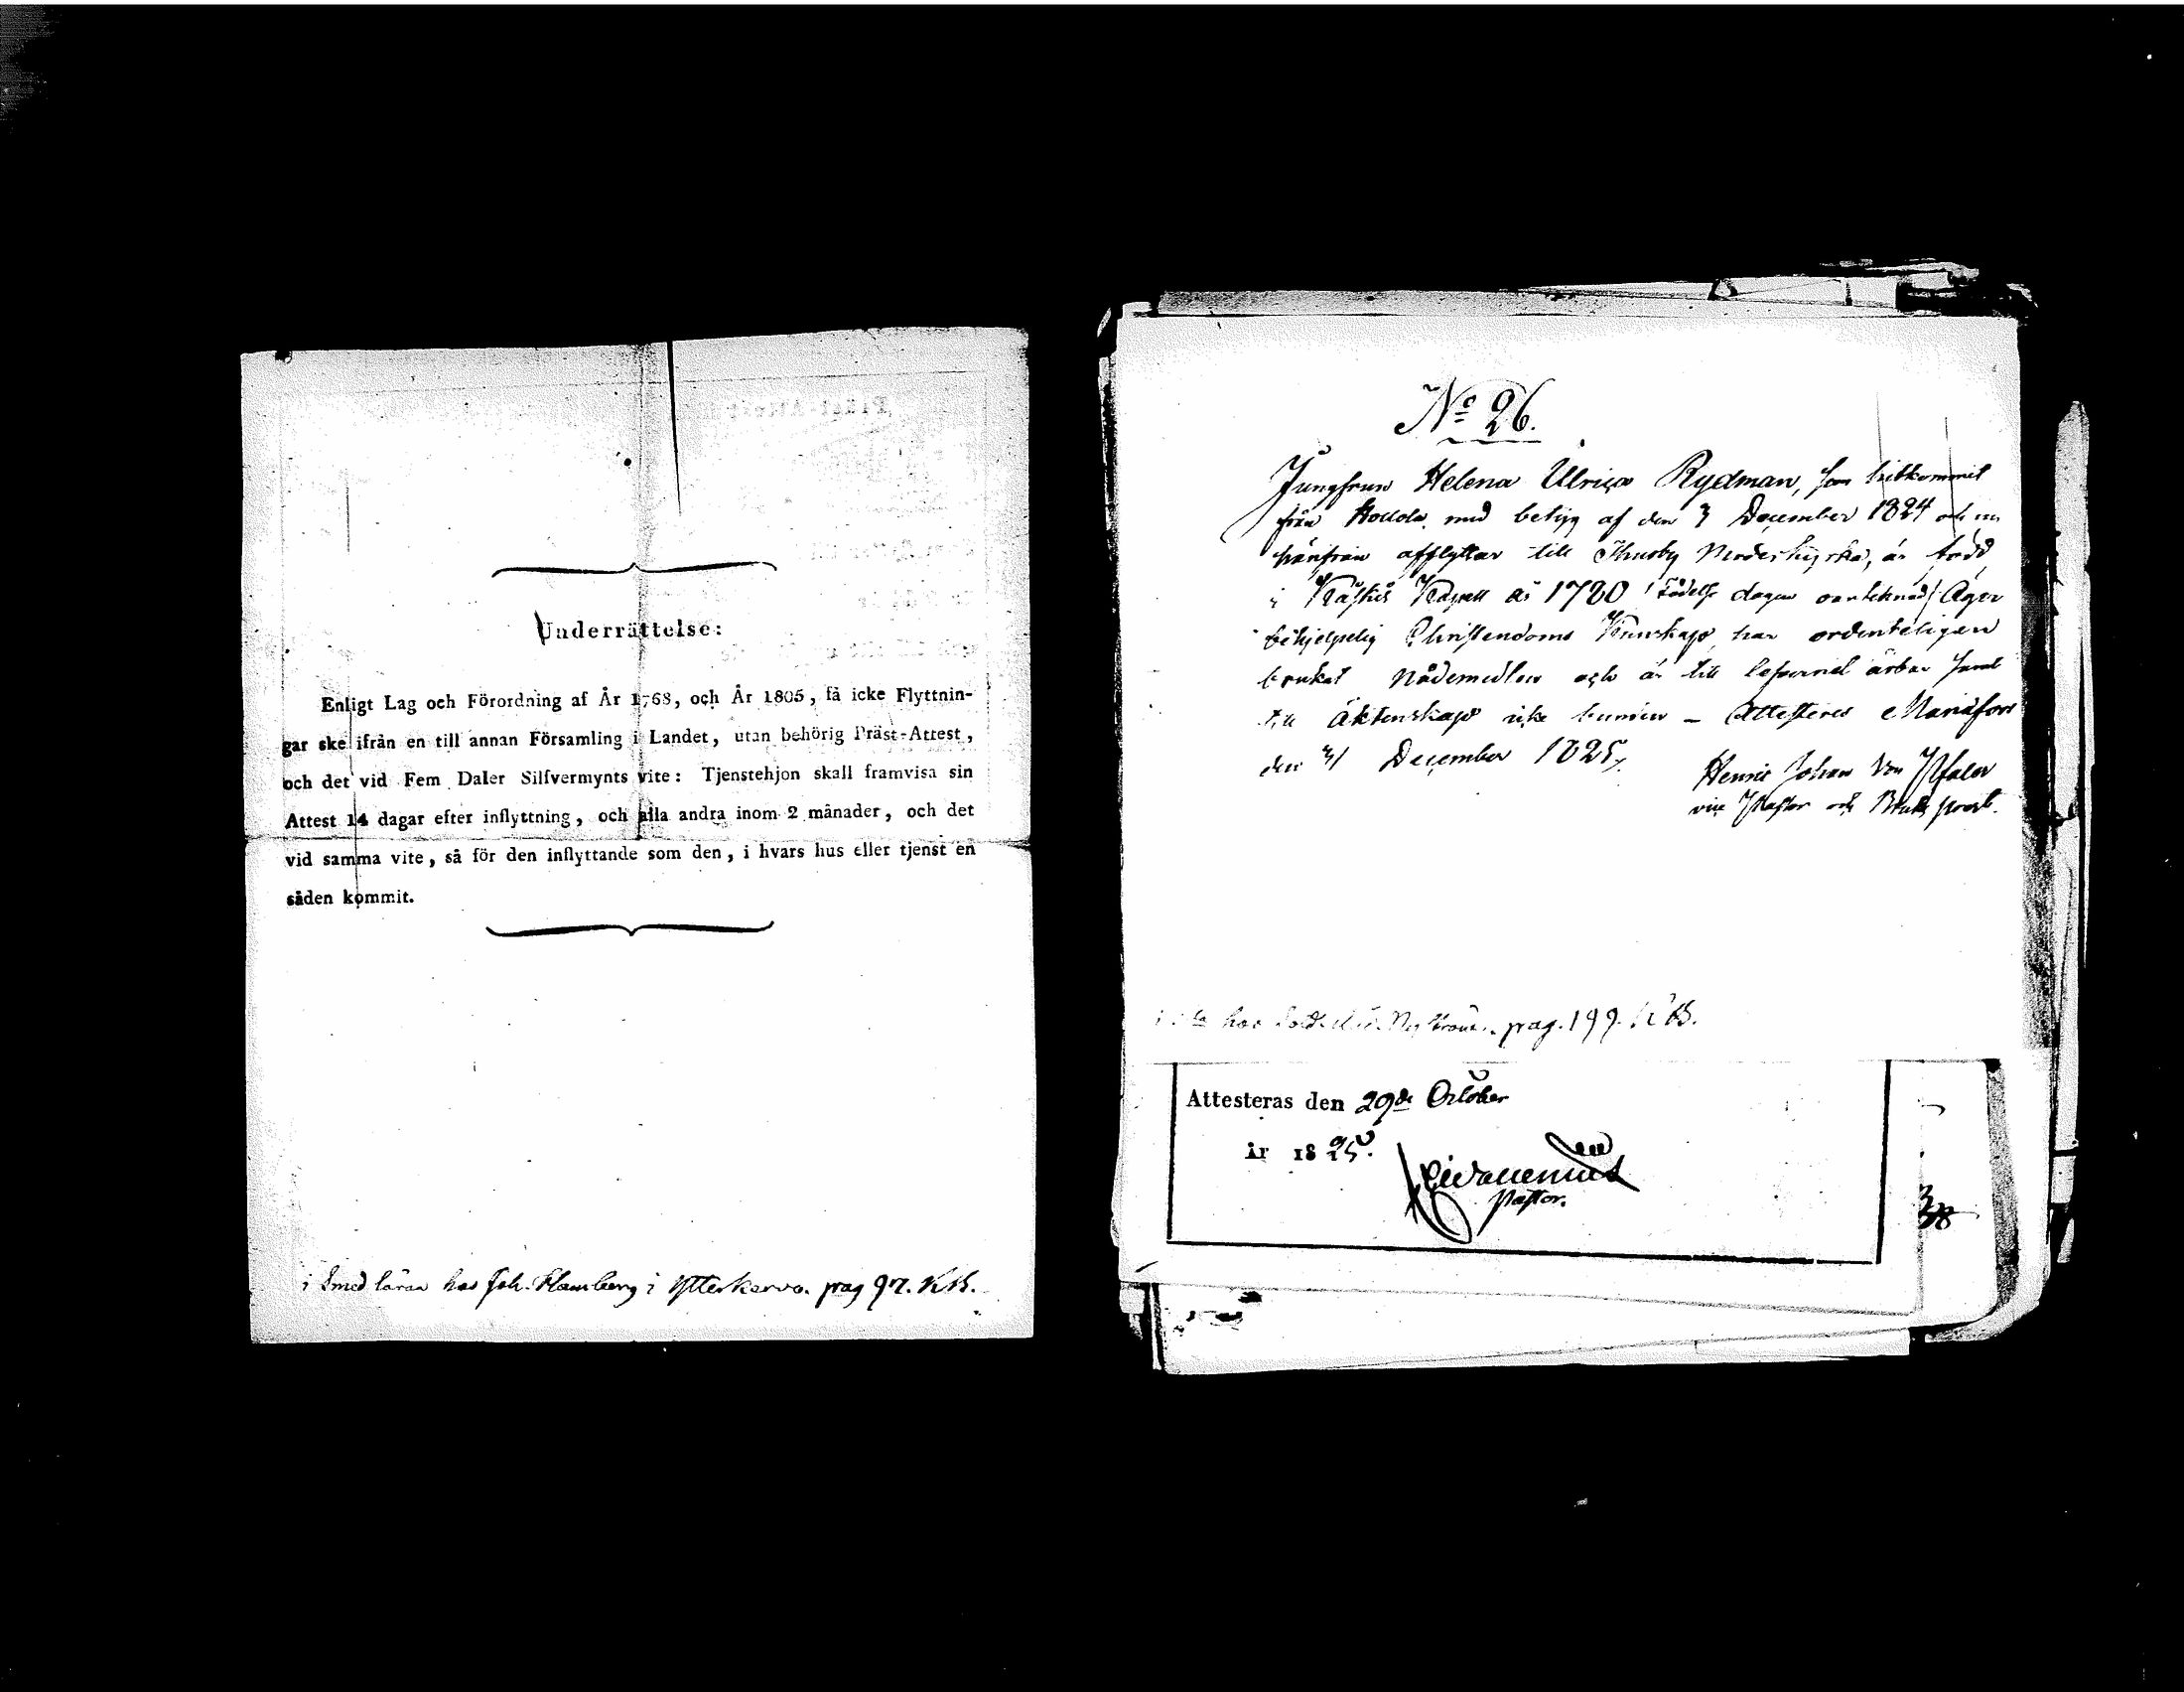 Underrättelse:
Enligt Lag och Förordning af År 1768, och År 1805, få icke Flyttnin-
gar ske ifrån en till annan Församling i Landet, utan behörig Präst-Attest,
och det vid Fem Daler Silfvermynts vite: Tjenstehjon skall framvisa sin
Attest 14 dagar efter inflyttning, och alla andra inom 2 månader, och det
vid samma vite, så för den inflyttande som den, i hvars hus eller tjenst en
såden kommit.
i Smed läran hos Joh. Flamberg i Ytterkervo. pag 97. K.B.
No 26.
Jungfrun Helena Ulrica Rydman, som hitkommit
från Hollola med betyg af den 3 December 1824 och nu
härifrån afflyttar till Thusby Moderkyrka, är född
i Kapell år 1780 / Födelse dagen oantecknad / Äger
behjelpelig Christendoms Kunskap, har ordenteligen
brukat Nådemedlen och är till lefvernet ärbar samt
till äktenskap icke bunden – Attesteras Mariæfors
den 31 December 1825.
Henric Johan Von Pfaler
vice Pastor och Bruks pred.
hos pag. 199. K.B.
Attesteras den 29de October
år 1825.
Pastor.
38